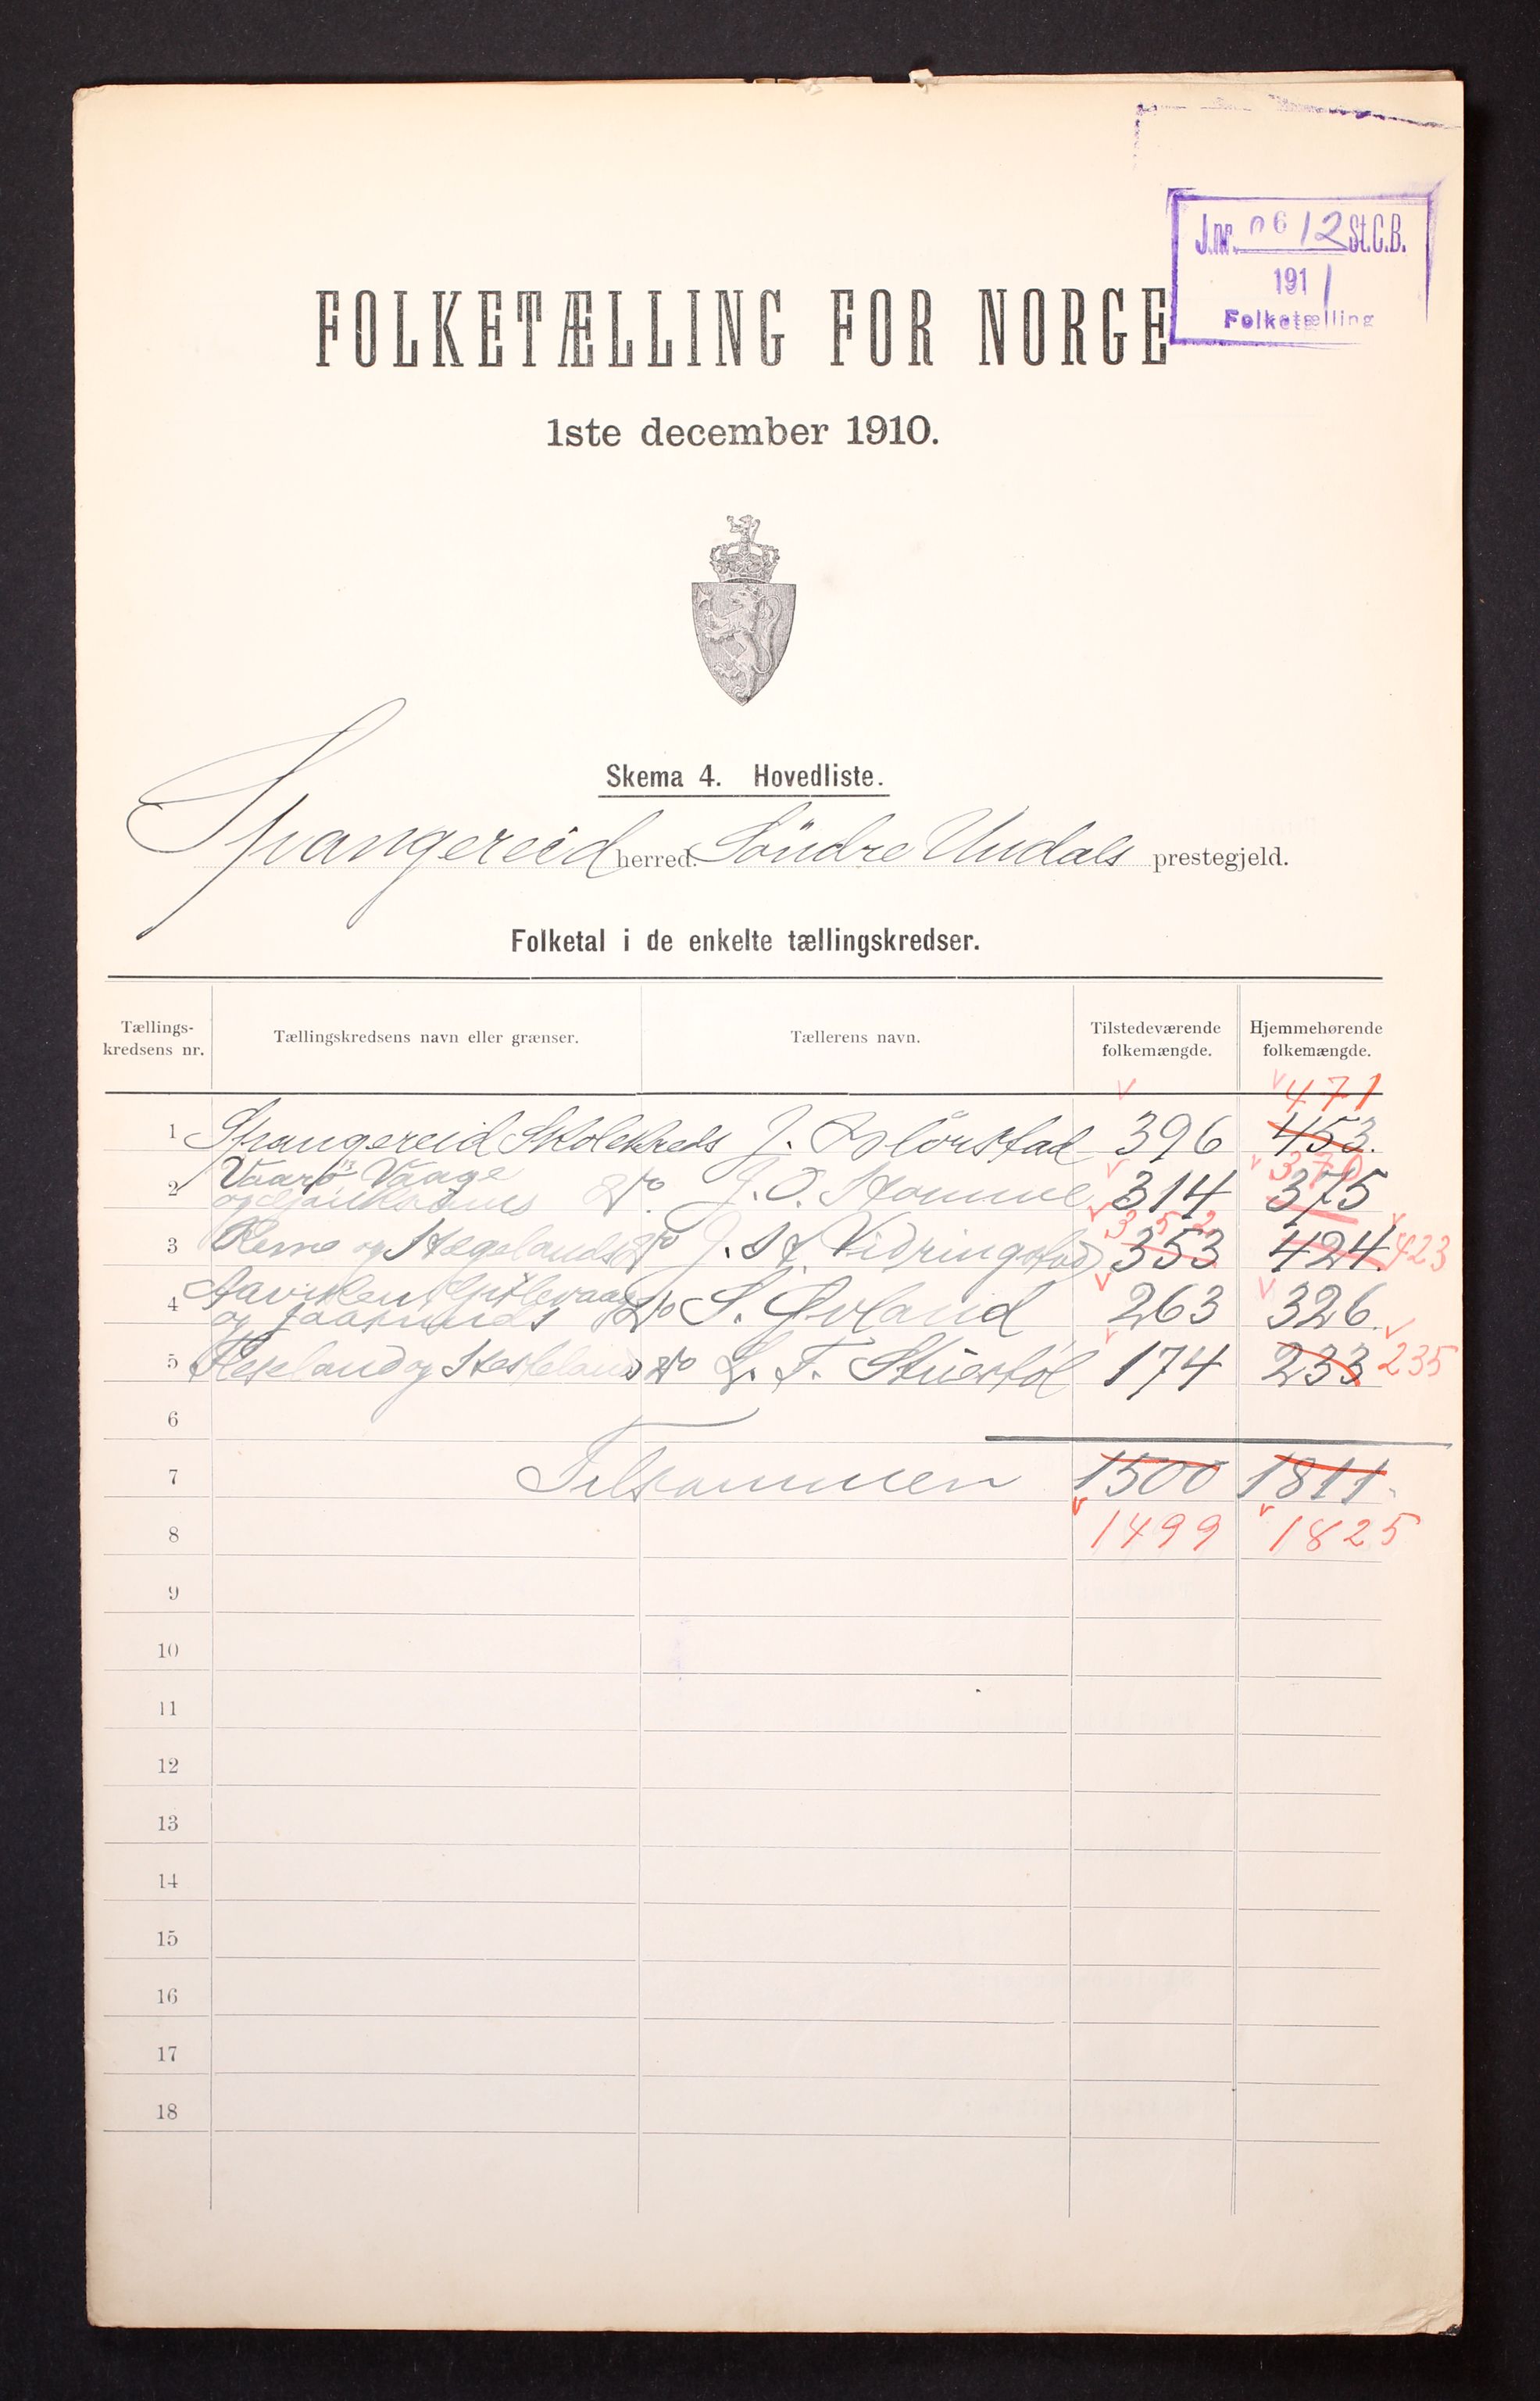 J.nr. 0612 St.C.B.
1911
Folketælling
FOLKETÆLLING FOR NORGE
1ste december 1910.
Skema 4. Hovedliste.
Spangereid herred. Söndre Undals prestegjeld.
Folketal i de enkelte tællingskredser.
Tællings-kredsens nr. Tællingskredsens navn eller grænser. Tællerens navn. Tilstedeværende folkemængde. Hjemmehørende folkemængde.
471
1 Spangereid Skolekreds J. 396 453.
370
2 Vaarø's Vaage og do J. O. Stomme 314 375
352
3 Remo og Hægelands do J. St. Vidringstad 353 424 423
4 og Jaasunds do S. Øvland 263 326.
5 Flekland og do L. T. Stuestøl 174 233 235
6
7 Tilsammen 1500 1811.
8 1499 1825
9
10
11
12
13
14
15
16
17
18